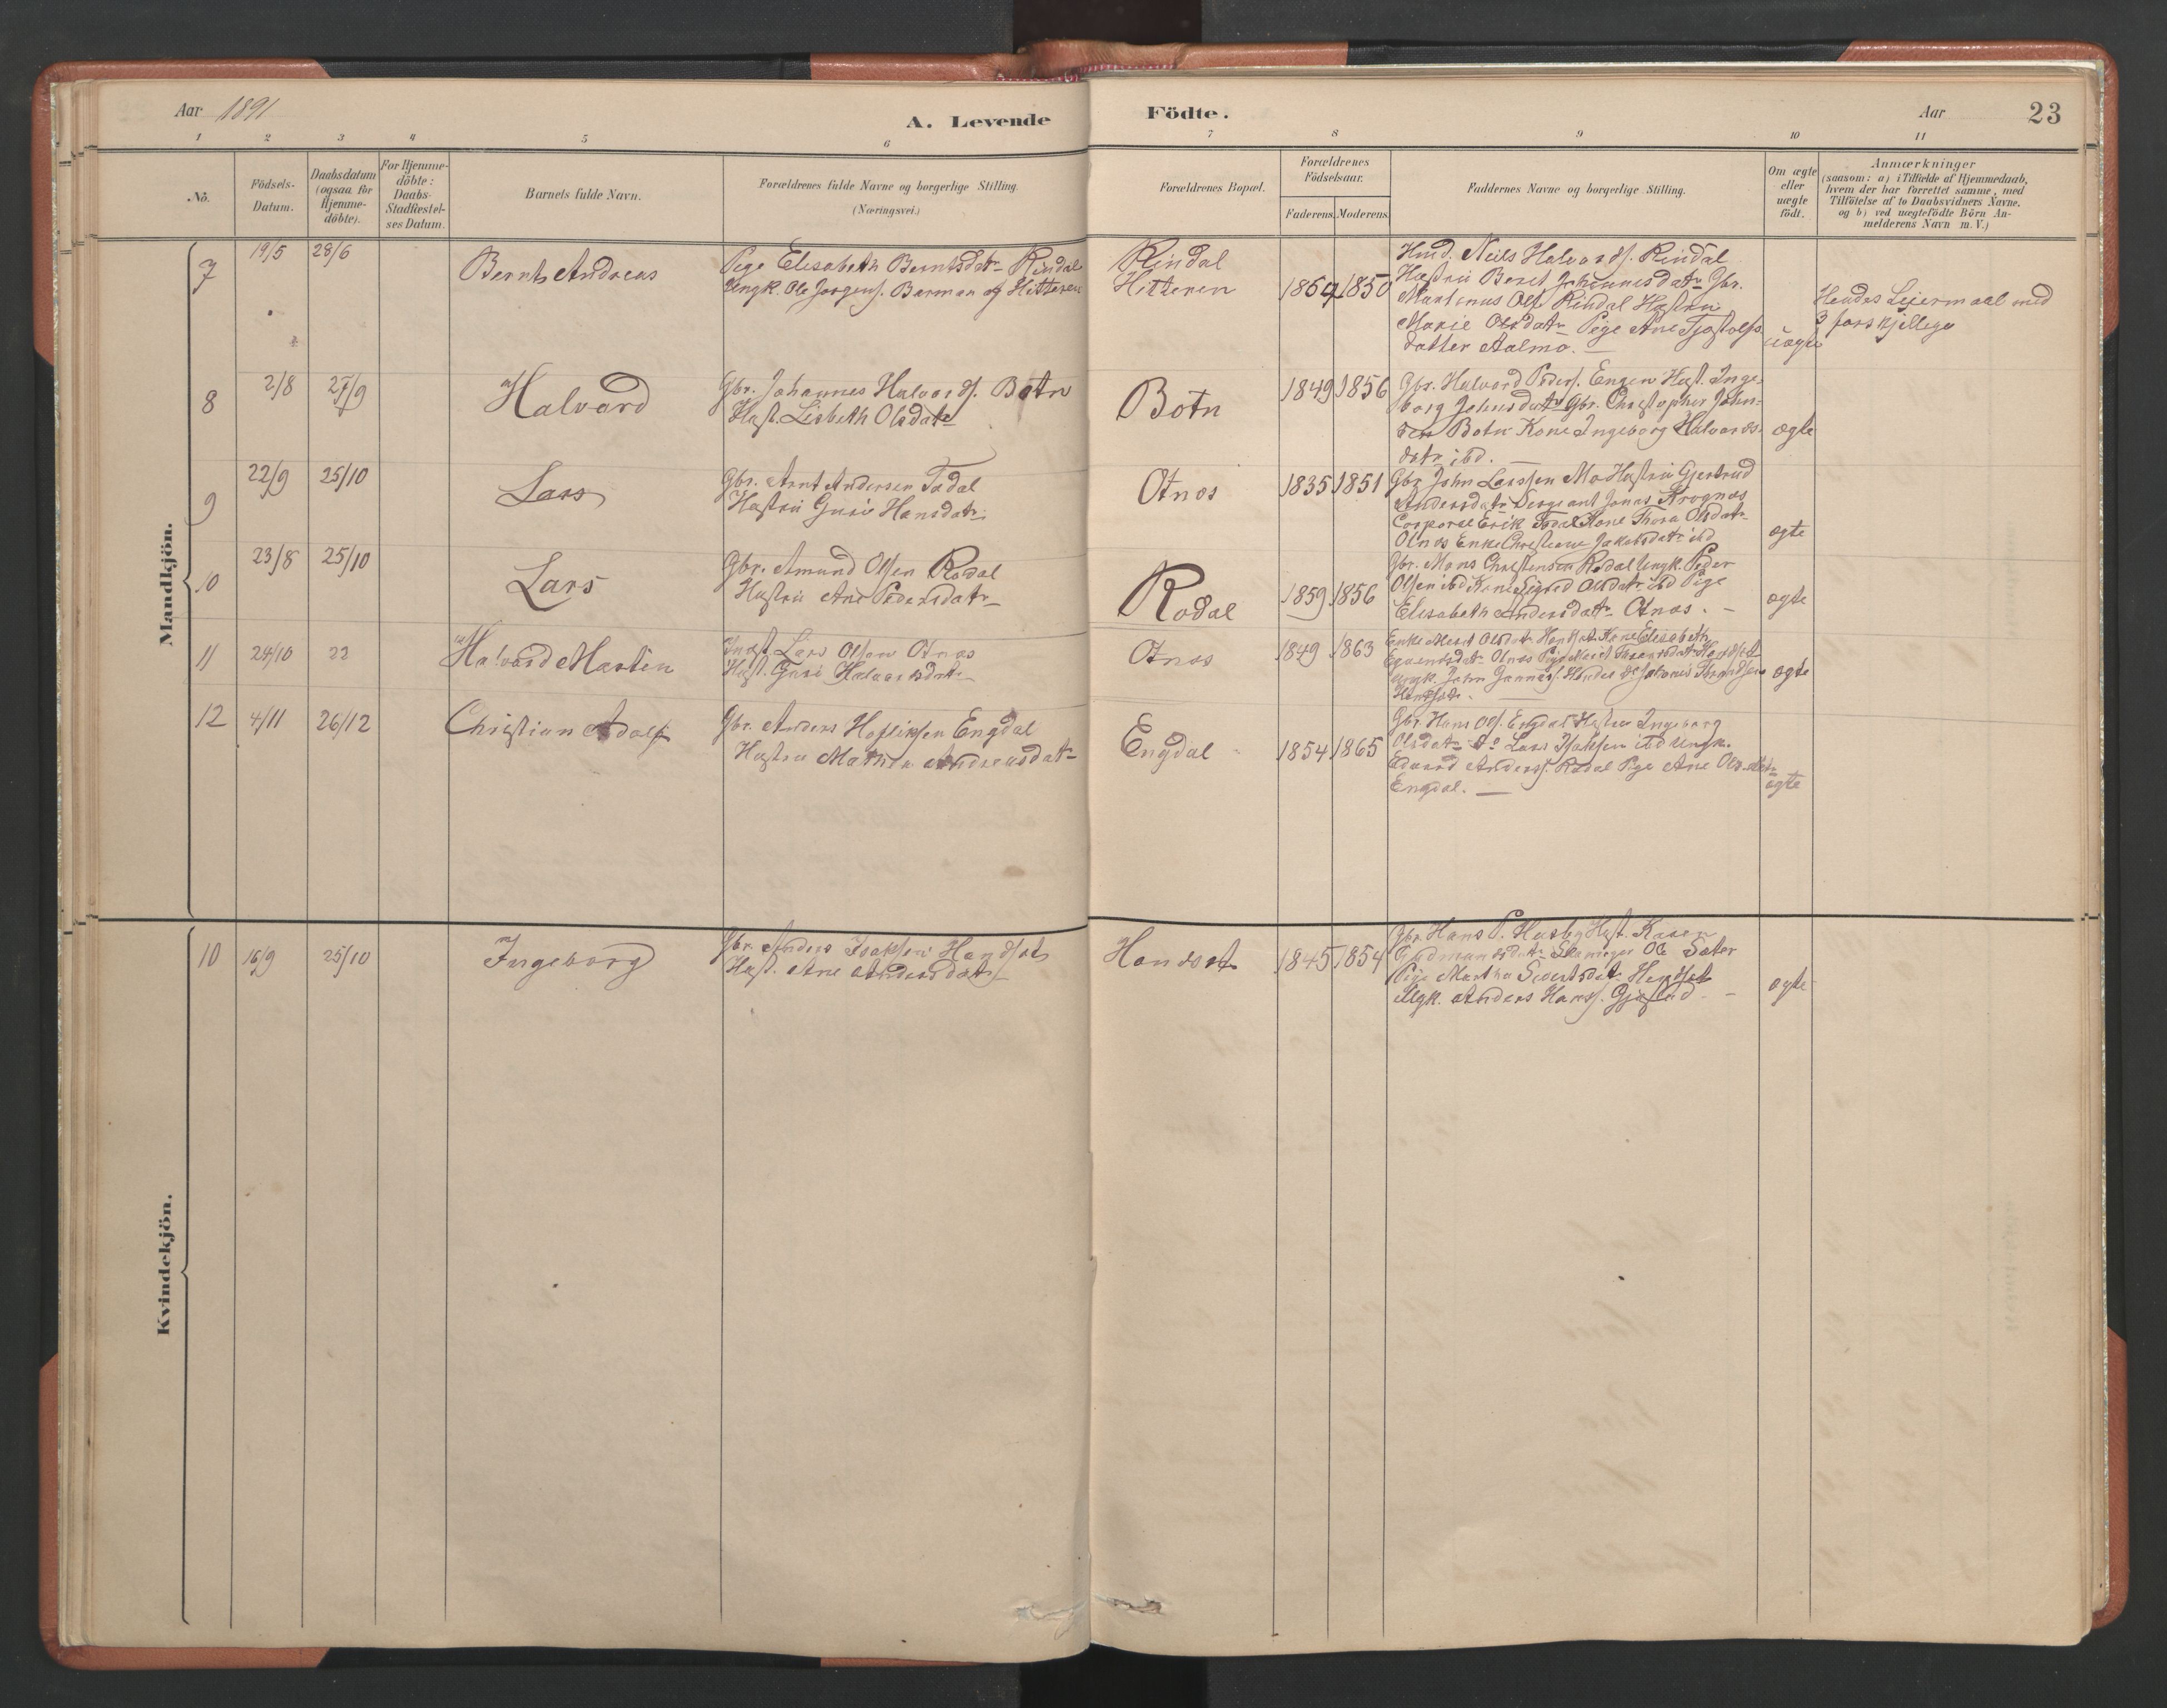 Aar 1891
A. Levende Födte.
Aar 23
1 2 3 4 5 6 7 8 9 10 11
No.
Födsels-
Datum.
Daabsdatum
(ogsaa for
Hjemme-
döbte).
For Hjemme-
döbte:
Daabs-
Stadfæstel-
ses Datum.
Barnets fulde Navn.
Forældrenes fulde Navne og borgerlige Stilling.
(Næringsvei.)
Forældrenes Bopæl.
Forældrenes
Födselsaar.
Faderens. Moderens.
Faddernes Navne og borgerlige Stilling.
Om ægte
eller
uægte
födt.
Anmærkninger
(saasom: a) i Tilfælde af Hjemmedaab,
hvem der har forrettet samme, med
Tilföielse af to Daabsvidners Navne.
og b) ved uægtefödte Börn An-
melderens Navn m. V.)
Mandkjön.
7 19/5 28/6 Bernt Andreas
Pige Elisabeth Berntsdatr Rindal
Ungk. Ole Jørgens. Barman af Hitteren
Rindal
Hitteren
1869 1850
Hmd. Neils Halvords. Rindal
Hustru Beret Johannesdatr Gbr.
Martinus Ols. Rindal Hustru
Marie Olsdatr Pige Ane
datter Aalmo. —
uægte
Hendes Leiermaal med
3 forskjellige
8 2/8 27/9 Halvard
Gbr. Johannes Halvords. Botn
Hust. Lisbeth Olsdatr
Botn
1849 1856
Gbr. Halvord Peders. Engen Hust. Inge-
borg Johnsdatr Gbr. Christopher John-
sen Botn Kone Ingeborg Halvords-
datr ibd. —
ægte
9 22/9 25/10 Lars
Gbr. Arnt Andersen Todal
Hustru Guri Hansdatr
Otnes
1835 1851
Gbr John Larssen Mo Hustru Gjertrud
Andersdatr Sergeant Jonas Krognes
Corporal Erik Todal Kone Thora Olsdatr
Otnes Enke Christiane Jakobsdatr ibd
ægte
10 23/8 25/10 Lars
Gbr. Amund Olsen Rodal
Hustru Ane Pedersdatr
Rodal
1859 1856
Gbr. Mons Christensen Rodal Ungk. Peder
Olsen ibd Kone Sigrid Olsdatr ibd Pige
Elisabeth Andersdatr Otnes. —
ægte
11 24/10 22 Halvard Martin
Lars Olsen Otnes
Hust. Guri Halvorsdatr
Otnes
1849 1863
Enke Marit Olsdatr Kone Elisabeth
Otnes Pige Marit
Ungk. John
ægte
12 4/11 26/12 Christian Adolf
Gbr. Anders Engdal
Hustru Andreasdatr
Engdal
1854 1865
Gbr. Hans Ols. Engdal Hustru Ingeborg
Olsdatr Do Lars Isaksen ibd Ungk.
Edvard Anderss. Rodal Pige Ane Olsdatr
Engdal. —
ægte
Kvindekjön.
10 16/9 25/10 Ingeborg
Gbr. Anders Isaksen Handset
Hust. Ane Andersdatr
Handset
1845 1854
Gbr Hans P. Husby Hust. Karen
Gudmundsdatr Ole Sæter
Pige Martha Sivertsdatr Hendset
Ungk. Anders Hanss. —
ægte